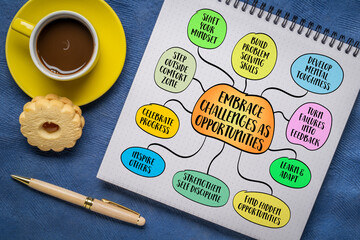 SHIFT YOUR
MINDSET
BUILD
PROBLEM
SOLVING
SKILLS
DEVELOP
MENTAL
TOUGHNESS
STEP
OUTSIDE
COMFORT
ZONE
EMBRACE
CHALLENGES AS
OPPORTUNITIES
TURN
FAILURES
INTO
FEEDBACK
CELEBRATE
PROGRESS
LEARN &
ADAPT
INSPIRE
OTHERS
STRENGTHEN
SELF DISCIPLINE
FIND HIDDEN
OPPORTUNITIES